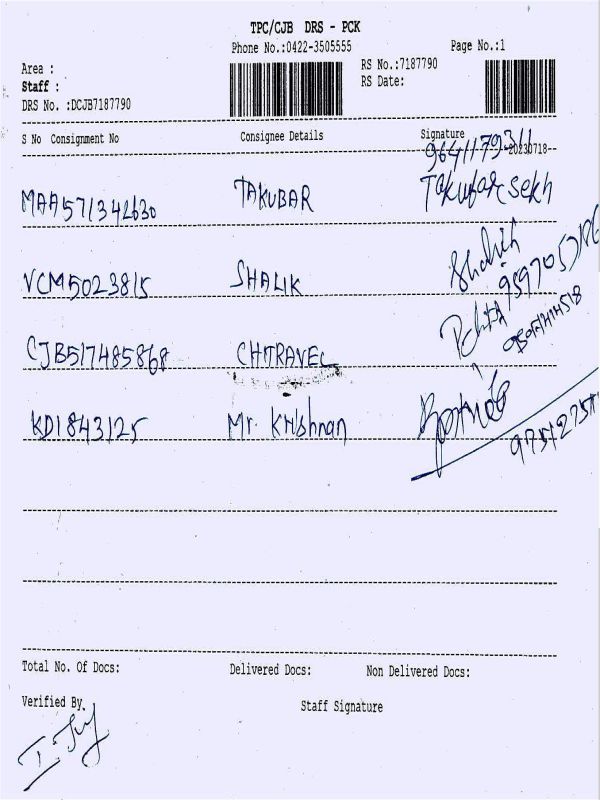 TPC/CJB DRS - PCK
Phone No.:0422-3505555 Page No.:1
Area : RS No.:7187790
Staff : RS Date:
DRS No. :DCJB7187790
S No Consignment No Consignee Details Signature
9641179311 20230718
MAA571342630 TAKUBAR Takubar sekh
VCM5023815 SHALIK Shalik
CJB517485868 CHTRAVEL
KD1843125 Mr. Krishnan
Total No. Of Docs: Delivered Docs: Non Delivered Docs:
Verified By Staff Signature